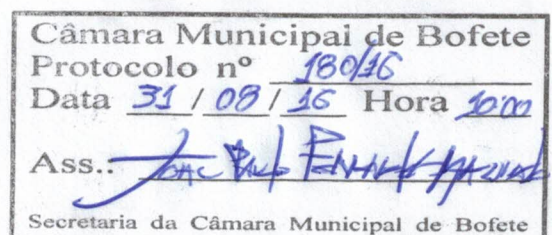 Câmara Municipal de Bofete
Protocolo nº 180/16
Data 31 / 08 / 16 Hora 10:00
Ass.:
Secretaria da Câmara Municipal de Bofete